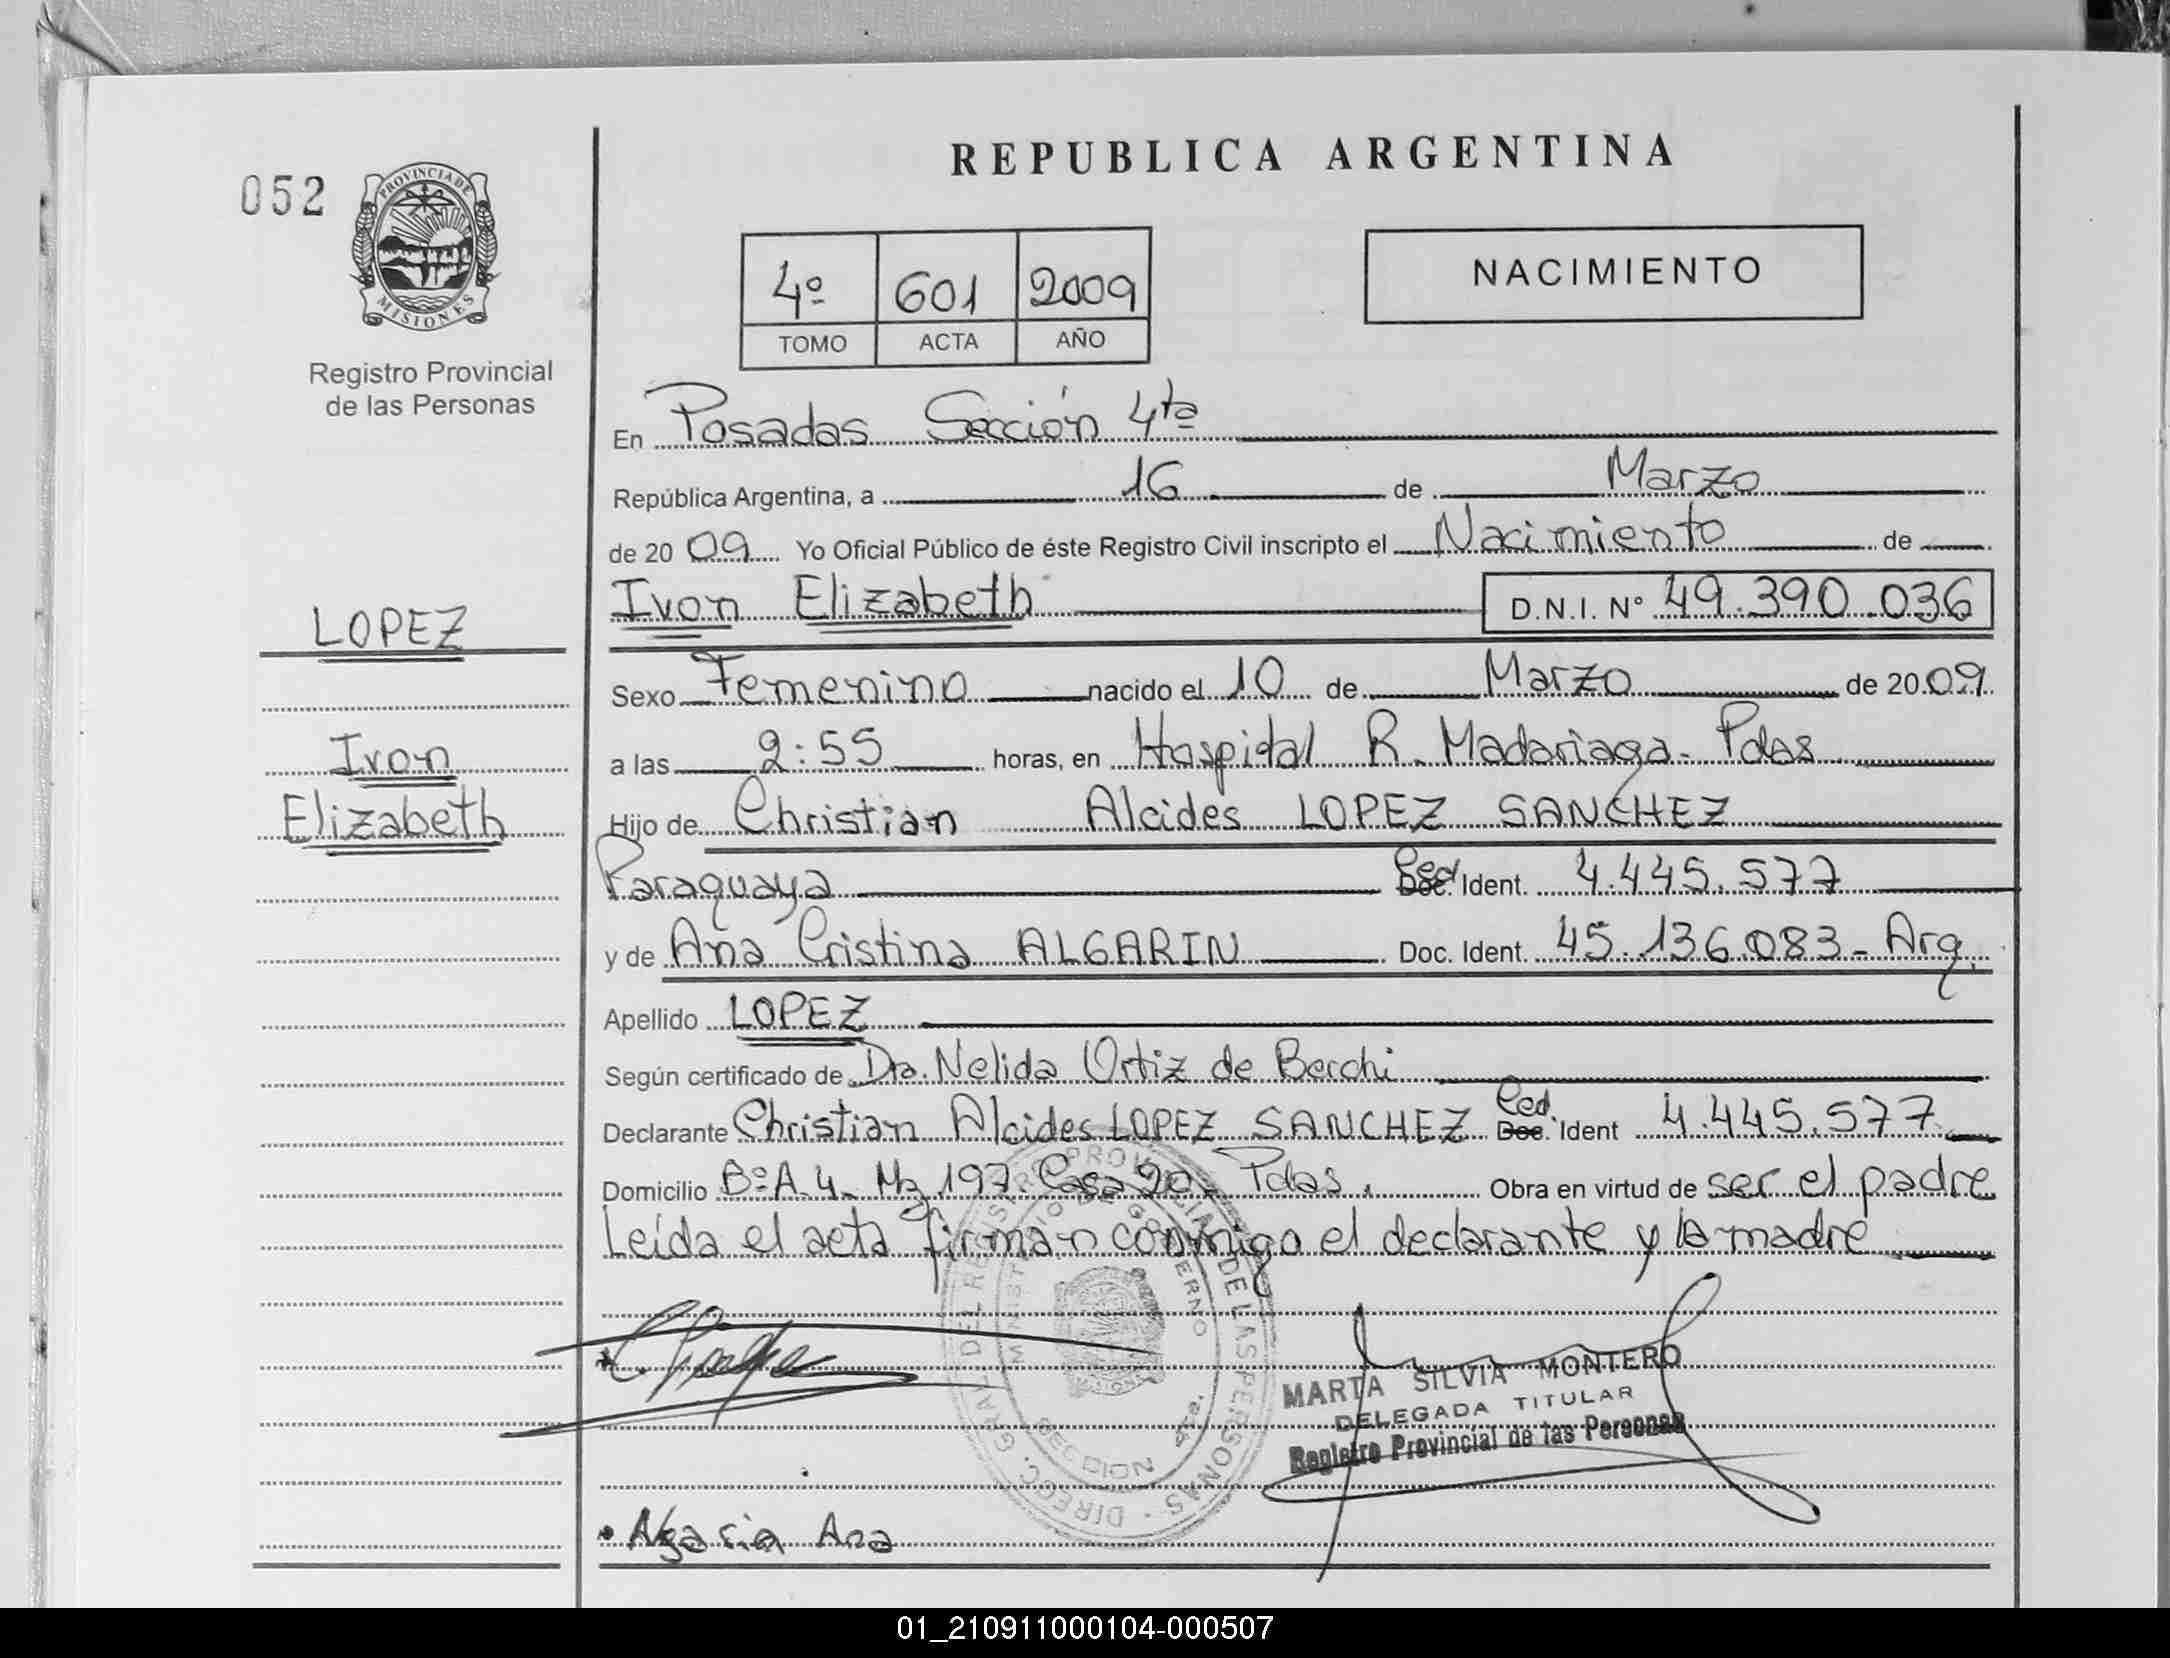 REPUBLICA ARGENTINA
052
PROVINCIA DE
MISIONES
Registro Provincial
de las Personas
NACIMIENTO
4º 601 2009
TOMO ACTA AÑO
En Posadas Sección 4ta
República Argentina, a 16 de Marzo
de 20 09 Yo Oficial Público de éste Registro Civil inscripto el Nacimiento de
Ivon Elizabeth D.N.I. N° 49.390.036
LOPEZ
Sexo Femenino nacido el 10 de Marzo de 20 09
Ivon
a las 2:55 horas, en Hospital R. Madariaga - Pdas
Elizabeth
Hijo de Christian Alcides LOPEZ SANCHEZ
Paraguaya Ced. Doc. Ident. 4.445.577
y de Ana Cristina ALGARIN Doc. Ident. 45.136.083 - Arg.
Apellido LOPEZ
Según certificado de Dra. Nelida Ortiz de Berchi
Declarante Christian Alcides LOPEZ SANCHEZ Ced. Doc. Ident 4.445.577
Domicilio Bº A.4 - Mz 197 Casa 20 - Pdas. Obra en virtud de ser el padre
Leída el acta firman conmigo el declarante y la madre
DIRECC. GRAL. DEL REGISTRO PROVINCIAL DE LAS PERSONAS
MINISTERIO DE GOBIERNO
SECCION 4ta.
MARTA SILVIA MONTERO
DELEGADA TITULAR
Registro Provincial de las Personas
Algarin Ana
01_210911000104-000507